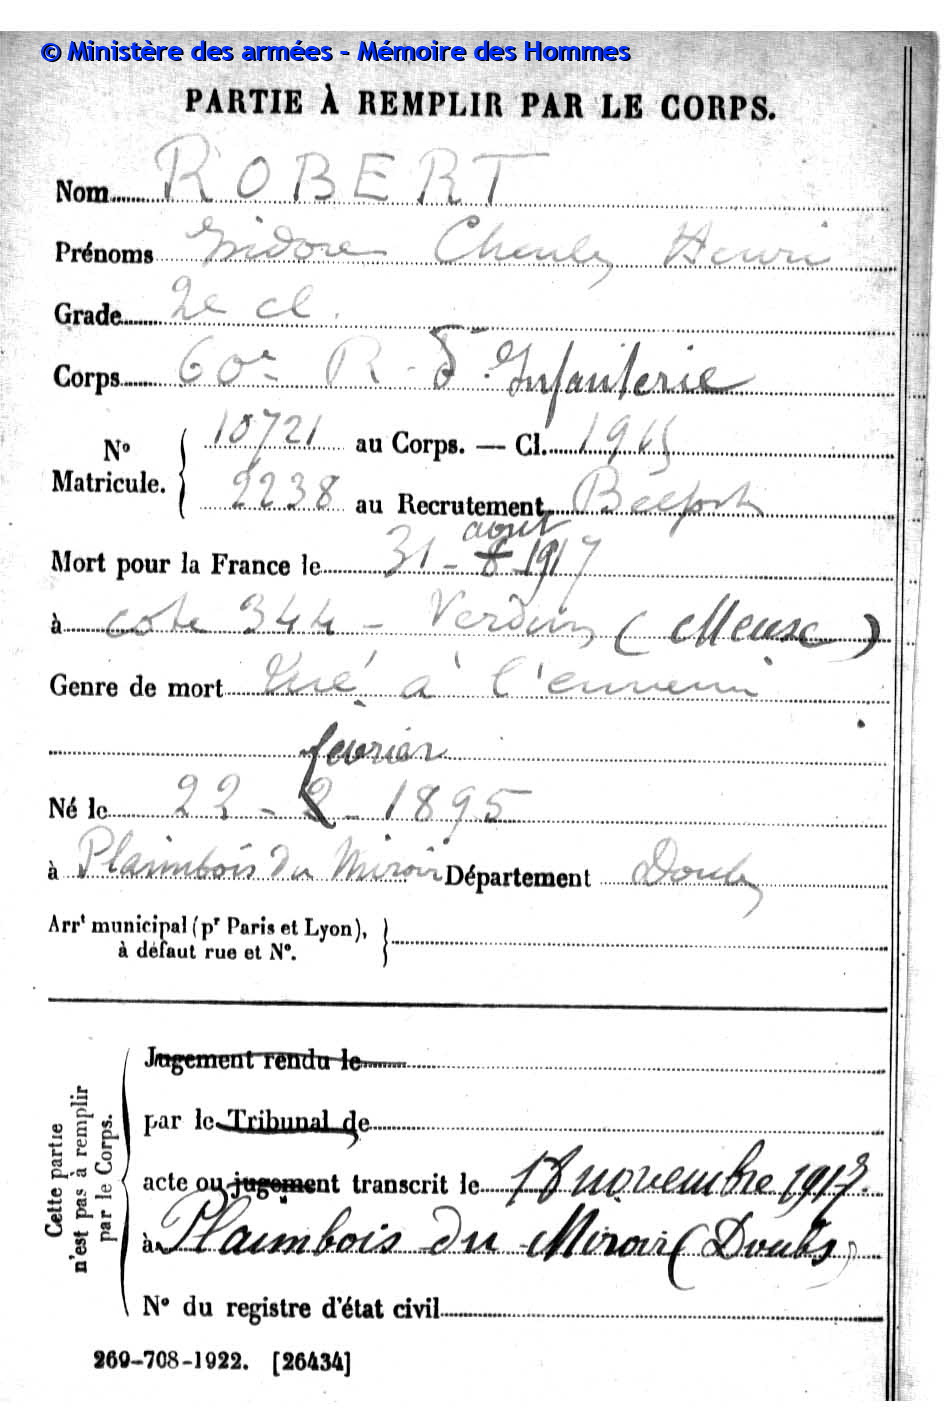 © Ministère des armées - Mémoire des Hommes
PARTIE À REMPLIR PAR LE CORPS.
Nom ROBERT
Prénoms Isidore Charles Henri
Grade 2e cl.
Corps 60e R. d'Infanterie
N° Matricule. 10721 au Corps. — Cl. 1915
2238 au Recrutement Belfort
août
Mort pour la France le 31 - 8 - 1917
à cote 344 - Verdun (Meuse)
Genre de mort Tué à l'ennemi
février
Né le 22 - 2 - 1895
à Plaimbois du Miroir Département Doubs
Arrt municipal (pr Paris et Lyon),
à défaut rue et N°.
Cette partie
n'est pas à remplir
par le Corps.
Jugement rendu le
par le Tribunal de
acte ou jugement transcrit le 18 novembre 1917.
à Plaimbois du Miroir (Doubs)
N° du registre d'état civil
269-708-1922. [26434]